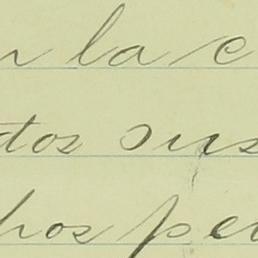 n la c
dos sus
hos pe